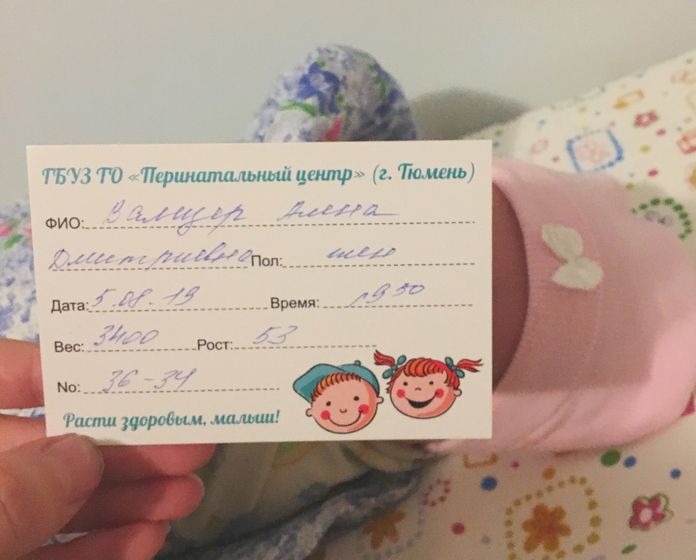 ГБУЗ ТО «Перинатальный центр» (г. Тюмень)
ФИО: Валцер Алена
Дмитриевна Пол: жен
Дата: 5.08.19 Время: 1950
Вес: 3400 Рост: 53
No: 36-34
Расти здоровым, малыш!